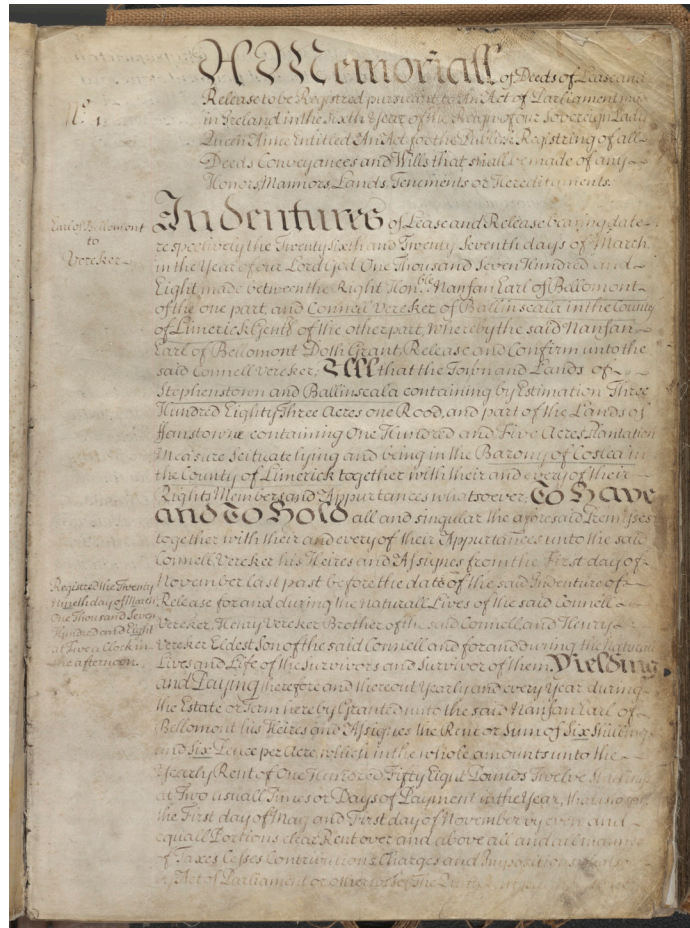 A Memoriall of Deeds of Lease and
Nº. 1. Release to be Registred pursuant to An Act of Parliament
in Ireland in the Sixth Year of the Reign of our Sovereign Lady
Queen Anne Entitled An Act for the Publick Registring of all
Deeds Conveyances and Wills that shall be made of any
Honors, Mannors, Lands, Tenements or Hereditaments.
Earl of Bellomont
to
Vereker
Indentures of Lease and Release bearing date
respectively the Twenty Sixth and Twenty Seventh days of March
in the Year of our Lord God One Thousand Seven Hundred and
Eight made between the Right Honble. Nanfan Earl of Bellomont
of the one part, and Connell Vereker of Ballinscala in the County
of Limerick Gent of the other part, Whereby the said Nanfan
Earl of Bellomont Doth Grant, Release and Confirm unto the
said Connell Vereker, All that the Town and Lands of
Stephenstown and Ballinscala containing by Estimation Three
Hundred Eighty Three Acres one Rood, and part of the Lands of
containing One Hundred and Five Acres Plantation
Measure Scituate lying and being in the Barony of Coslea in
the County of Limerick together with their and every of their
Rights Members and Appurtances whatsoever, To Have
and To Hold all and singular the aforesaid Premisses
together with their and every of their Appurtances unto the said
Connell Vereker his Heires and Assignes from the First day of
November last past before the date of the said Indenture of
Release for and during the Naturall Lives of the said Connell
Vereker, Henry Vereker Brother of the said Connell, and Henry
Vereker Eldest Son of the said Connell and for and during the Naturall
Lives and Life of the Survivors and Survivor of them, Yielding
and Paying therefore and thereout Yearly and every Year during
the Estate or Term hereby Granted unto the said Nanfan Earl of
Bellomont his Heires and Assignes the Rent or Sum of Six Shillings
and Six Pence per Acre, which in the whole amounts unto the
Yearly Rent of One Hundred Fifty Eight Pounds Twelve Shillings
at Two usuall Times or Days of Payment in the Year, that is to say
the First day of May and First day of November by even and
equall Portions clear Rent over and above all and all manner
of Taxes Cesses Contributions Charges and Impositions
Act of Parliament or otherwise
Registred the Twenty
Nineth day of March
One Thousand Seven
Hundred and Eight
at Five a Clock in
the afternoon.